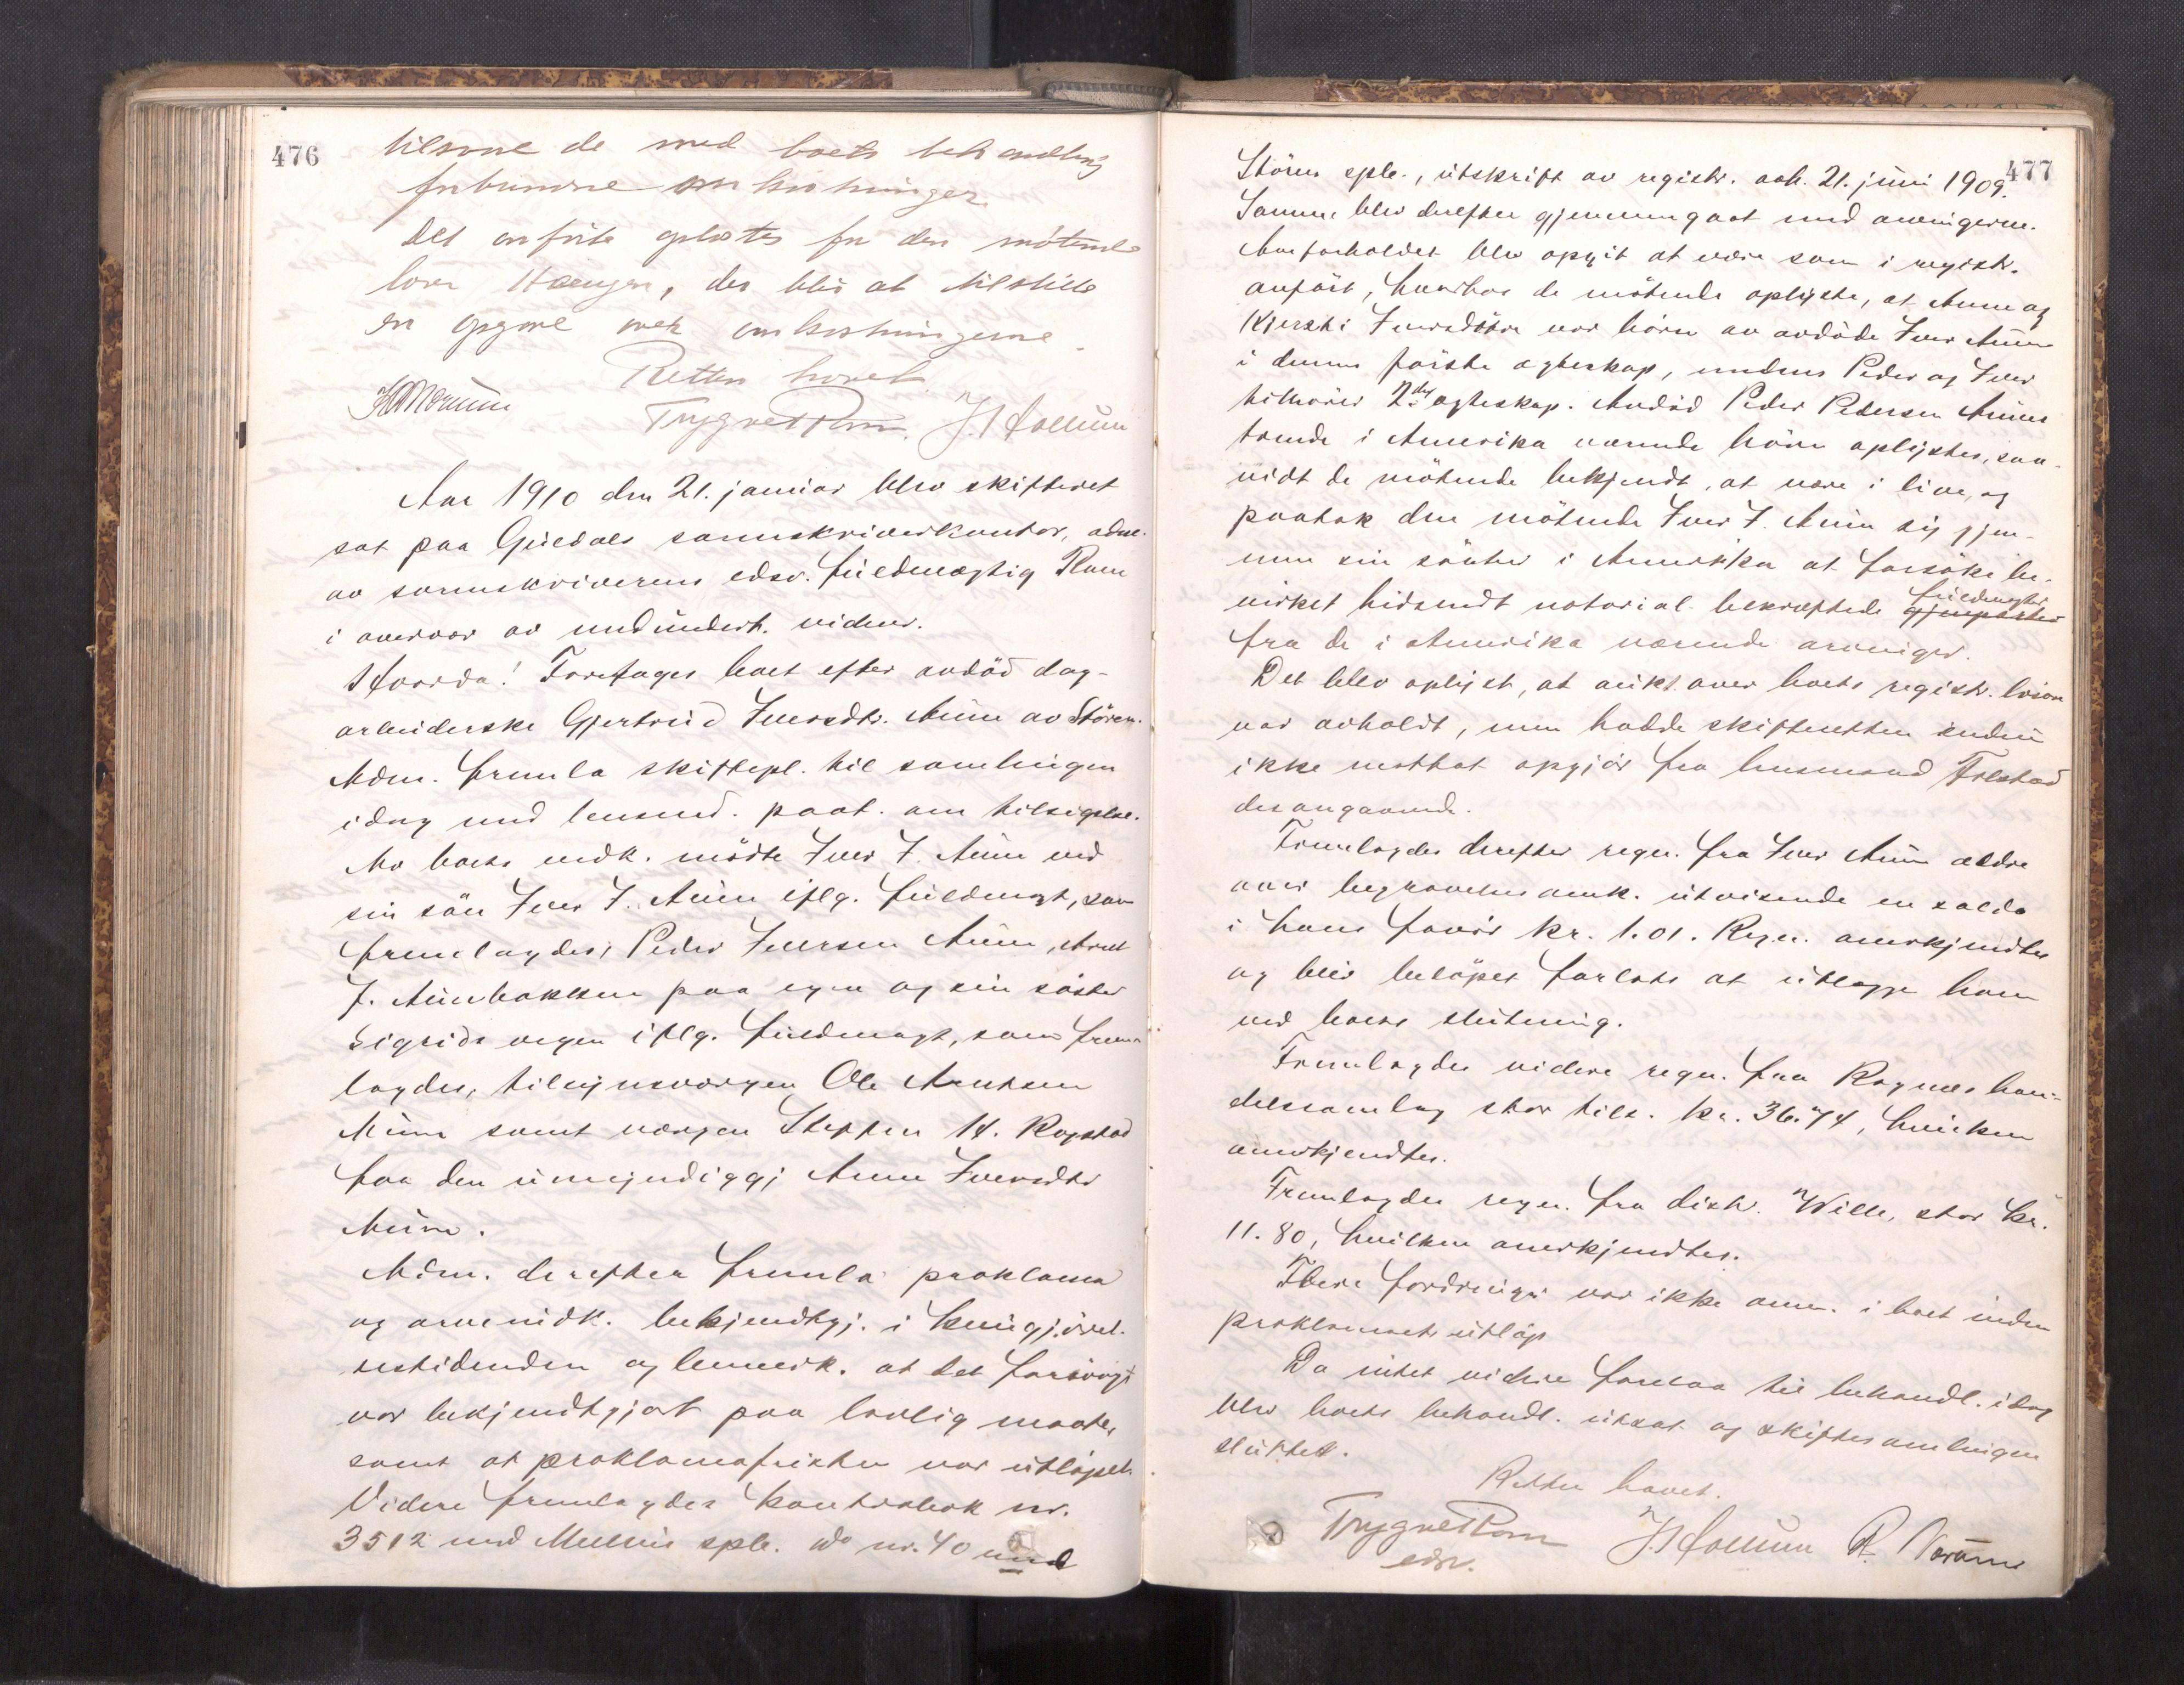 476
tilsvare de med boets behandling
forbundne omkostninger.
Det anførte oplæstes for den møtende
, der blev at tilstille
en opgave over omkostningerne.
Retten hævet.
Trygve Rom. J. Hollum
Aar 1910 den 21. januar blev skifteret
sat paa Guldals sorenskriverkontor, adm.
av sorenskriverens edsv. fuldmægtig Rom
i overvær av medundert. vidner.
Hvorda! Foretages boet efter avdød dag-
arbeiderske Gjertrud Iversdtr. Aune av Støren.
Adm. fremla skiftepl. til samlingen
idag med lensmd. paat. om tilsigelse.
Av boets vedk. mødte Iver I. Aune ved
sin søn Iver I. Aune iflg. fuldmagt, som
fremlagdes, Peder Iversen Aune, Arnt
J. Aunebakken paa egne og sin søster
Sigrids vegne iflg. fuldmagt, som frem-
lagdes, tilsynsvergen Ole Arntsen
Aune samt vergen Steffen H. Rogstad
for den umyndiggj. Anne Iversdtr
Aune.
Adm. derefter fremla proklama
og arveindk. bekjendtgj. i kundgjørel-
sestidenden og bemerk. at det forøvrigt
var bekjendtgjort paa lovlig maate,
samt at proklamafristen var utløpet.
Videre fremlagdes kontrabok nr.
3512 med Melhus spb. do nr. 40 med
477
Støren spb., utskrift av registr. avh. 21. juni 1909.
Samme blev derefter gjennemgaat med arvingerne.
Arveforholdet blev opgit at være som i registr.
anført, hvorhos de møtende oplyste, at Anne og
Kjersti Iversdøtre var børn av avdøde Iver Aune
i dennes første egteskap, medens Peder og Iver
tilhører 2det egteskap. Avdød Peder Pedersen Aunes
trende i Amerika værende børn oplystes, saa-
vidt de møtende bekjendt, at være i live, og
paatok den møtende Iver I. Aune sig gjen-
nem sin søster i Amerika at forsøke be-
virket hidsendt notorial bekræftede gjenparter fuldmagter
fra de i Amerika værende arvinger.
Det blev oplyst, at aukt. over boets registr. løsøre
var avholdt, men hadde skifteretten endnu
ikke mottat opgjør fra lensmand Folstad
desangaaende.
Fremlagdes derefter regn. fra Iver Aune ældre
over begravelsesomk. utvisende en saldo
i hans favør kr. 1.01. Regn. anerkjendtes
og blev beløpet forlods at utlægge ham
ved boets slutning.
Fremlagdes videre regn. fra Rognes han-
delssamlag stor tils. kr. 36.74, hvilken
anerkjendtes.
Fremlagdes regn. fra distr. Wille, stor kr.
11.80, hvilken anerkjendtes.
Flere fordringer var ikke anm. i boet inden
proklamaets utløp
Da intet videre forelaa til behandl. idag
blev boets behandl. utsat og skiftesamlingen
sluttet.
Retten hævet.
Trygve Rom J. Hollum
edsv.